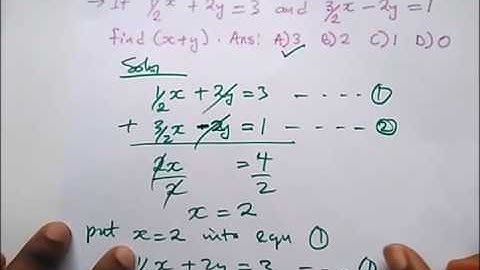 → If 1/2x + 2y = 3 and 3/2x - 2y = 1
find (x+y). Ans: A) 3 B) 2 C) 1 D) 0
Soln
1/2x + 2y = 3 ---- ①
+ 3/2x - 2y = 1 ---- ②
2x/2 = 4/2
x = 2
put x = 2 into equ ①
1/2x + 2y = 3 --- ①